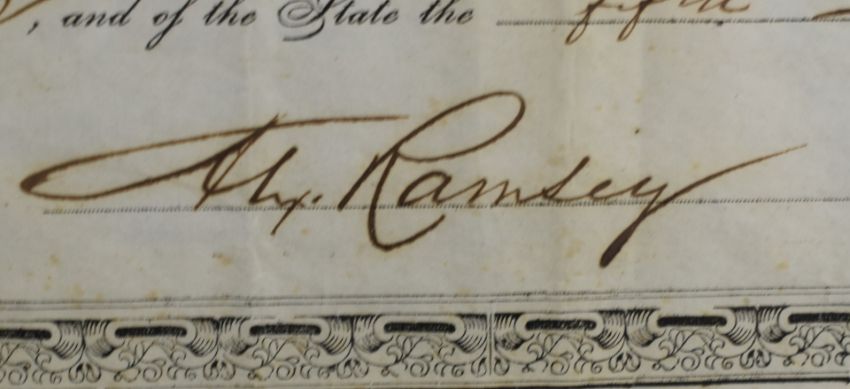 , and of the State the fifth
Alex. Ramsey